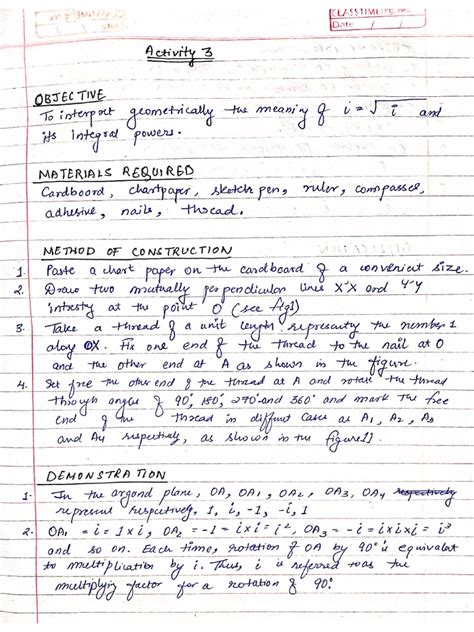 CLASSTIME
Date / /
Activity 3
OBJECTIVE
To interpret geometrically the meaning of i = √i and
its Integral powers.
MATERIALS REQUIRED
Cardboard, chartpaper, sketch pen, ruler, compasses,
adhesive, nails, thread.
METHOD OF CONSTRUCTION
1. Paste a chart paper on the cardboard of a convenient size.
2. Draw two mutually perpendicular lines X'X and Y'Y
at the point O (see fig 1)
3. Take a thread of a unit length representing the number 1
along OX. Fix one end of the thread to the nail at O
and the other end at A as shown in the figure.
4. Set free the other end of the thread at A and rotate the thread
through angles of 90°, 180°, 270° and 360° and mark the free
end of the thread in different cases as A1, A2, A3
and A4 respectively, as shown in the figure 1].
DEMONSTRATION
1. In the argand plane, OA, OA1, OA2, OA3, OA4 respectively
represent respectively, 1, i, -1, -i, 1
2. OA1 = i = 1×i, OA2 = -1 = i×i = i², OA3 = -i = i×i×i = i³
and so on. Each time, rotation of OA by 90° is equivalent
to multiplication by i. Thus, i is referred to as the
multiplying factor for a rotation of 90°.